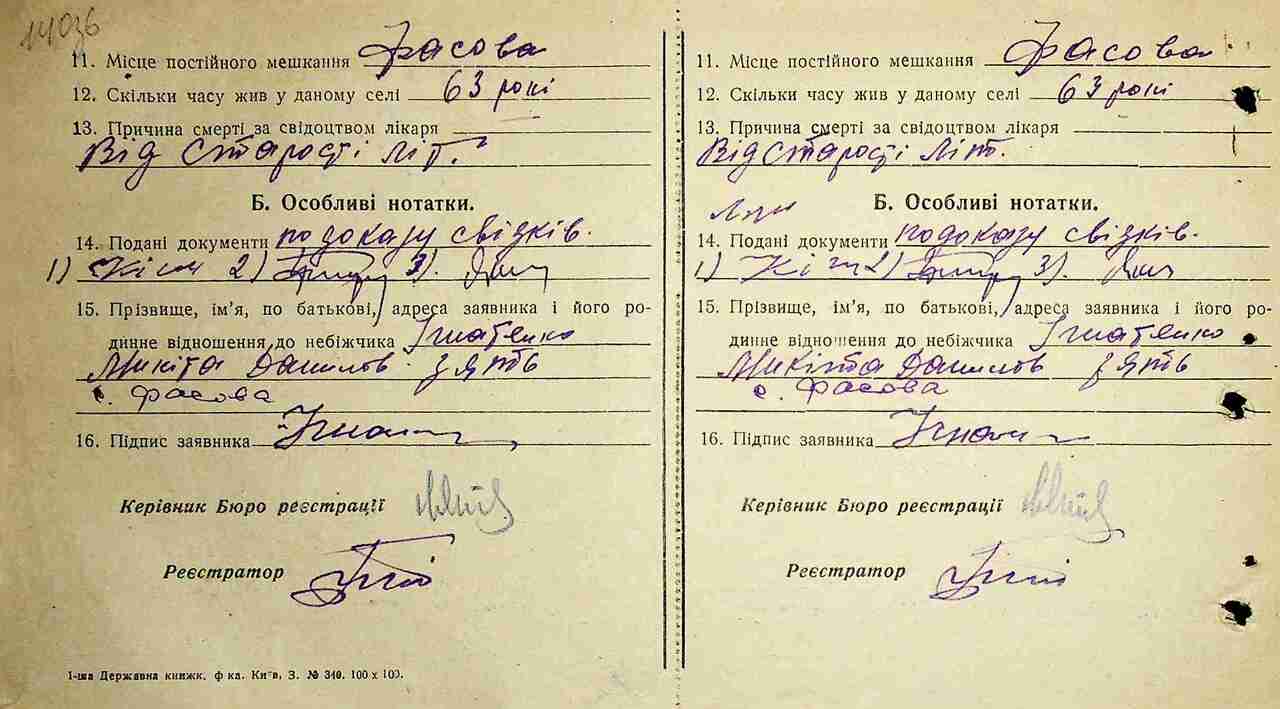 14036
11. Місце постійного мешкання Фасова
12. Скільки часу жив у даному селі 63 рокі
13. Причина смерті за свідоцтвом лікаря
Від Старості літ.
Б. Особливі нотатки.
14. Подані документи по доказу свідків.
1) 2) 3).
15. Прізвище, ім'я, по батькові, адреса заявника і його ро-
динне відношення до небіжчика Ігнатенко
Микіта Данилов зять
с. Фасова
16. Підпис заявника
Керівник Бюро реєстрації
Реєстратор
І-ша Державна книжк. ф-ка. Київ, З. № 340. 100 х 100.
11. Місце постійного мешкання Фасова
12. Скільки часу жив у даному селі 63 рокі
13. Причина смерті за свідоцтвом лікаря
Від Старості літ.
Б. Особливі нотатки.
14. Подані документи по доказу свідків.
1) 2) 3).
15. Прізвище, ім'я, по батькові, адреса заявника і його ро-
динне відношення до небіжчика Ігнатенко
Микіта Данилов зять
с. Фасова
16. Підпис заявника
Керівник Бюро реєстрації
Реєстратор